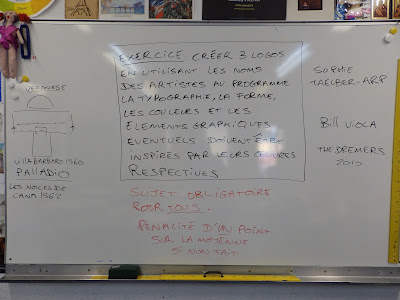 VERONESE
VILLA BARBARO 1560
PALLADIO
LES NOCES DE
CANA 1562
EXERCICE CRÉER 3 LOGOS
EN UTILISANT LES NOMS
DES ARTISTES AU PROGRAMME
LA TYPOGRAPHIE, LA FORME,
LES COULEURS ET LES
ÉLÉMENTS GRAPHIQUES
EVENTUELS DOIVENT ÊTRE
INSPIRÉS PAR LEURS OEUVRES
RESPECTIVES
SUJET OBLIGATOIRE
POUR TOUS.
PENALITÉ D'UN POINT
SUR LA MOYENNE
SI NON FAIT
SOPHIE
TAEUBER-ARP
Bill VIOLA
THE DREMERS
2013